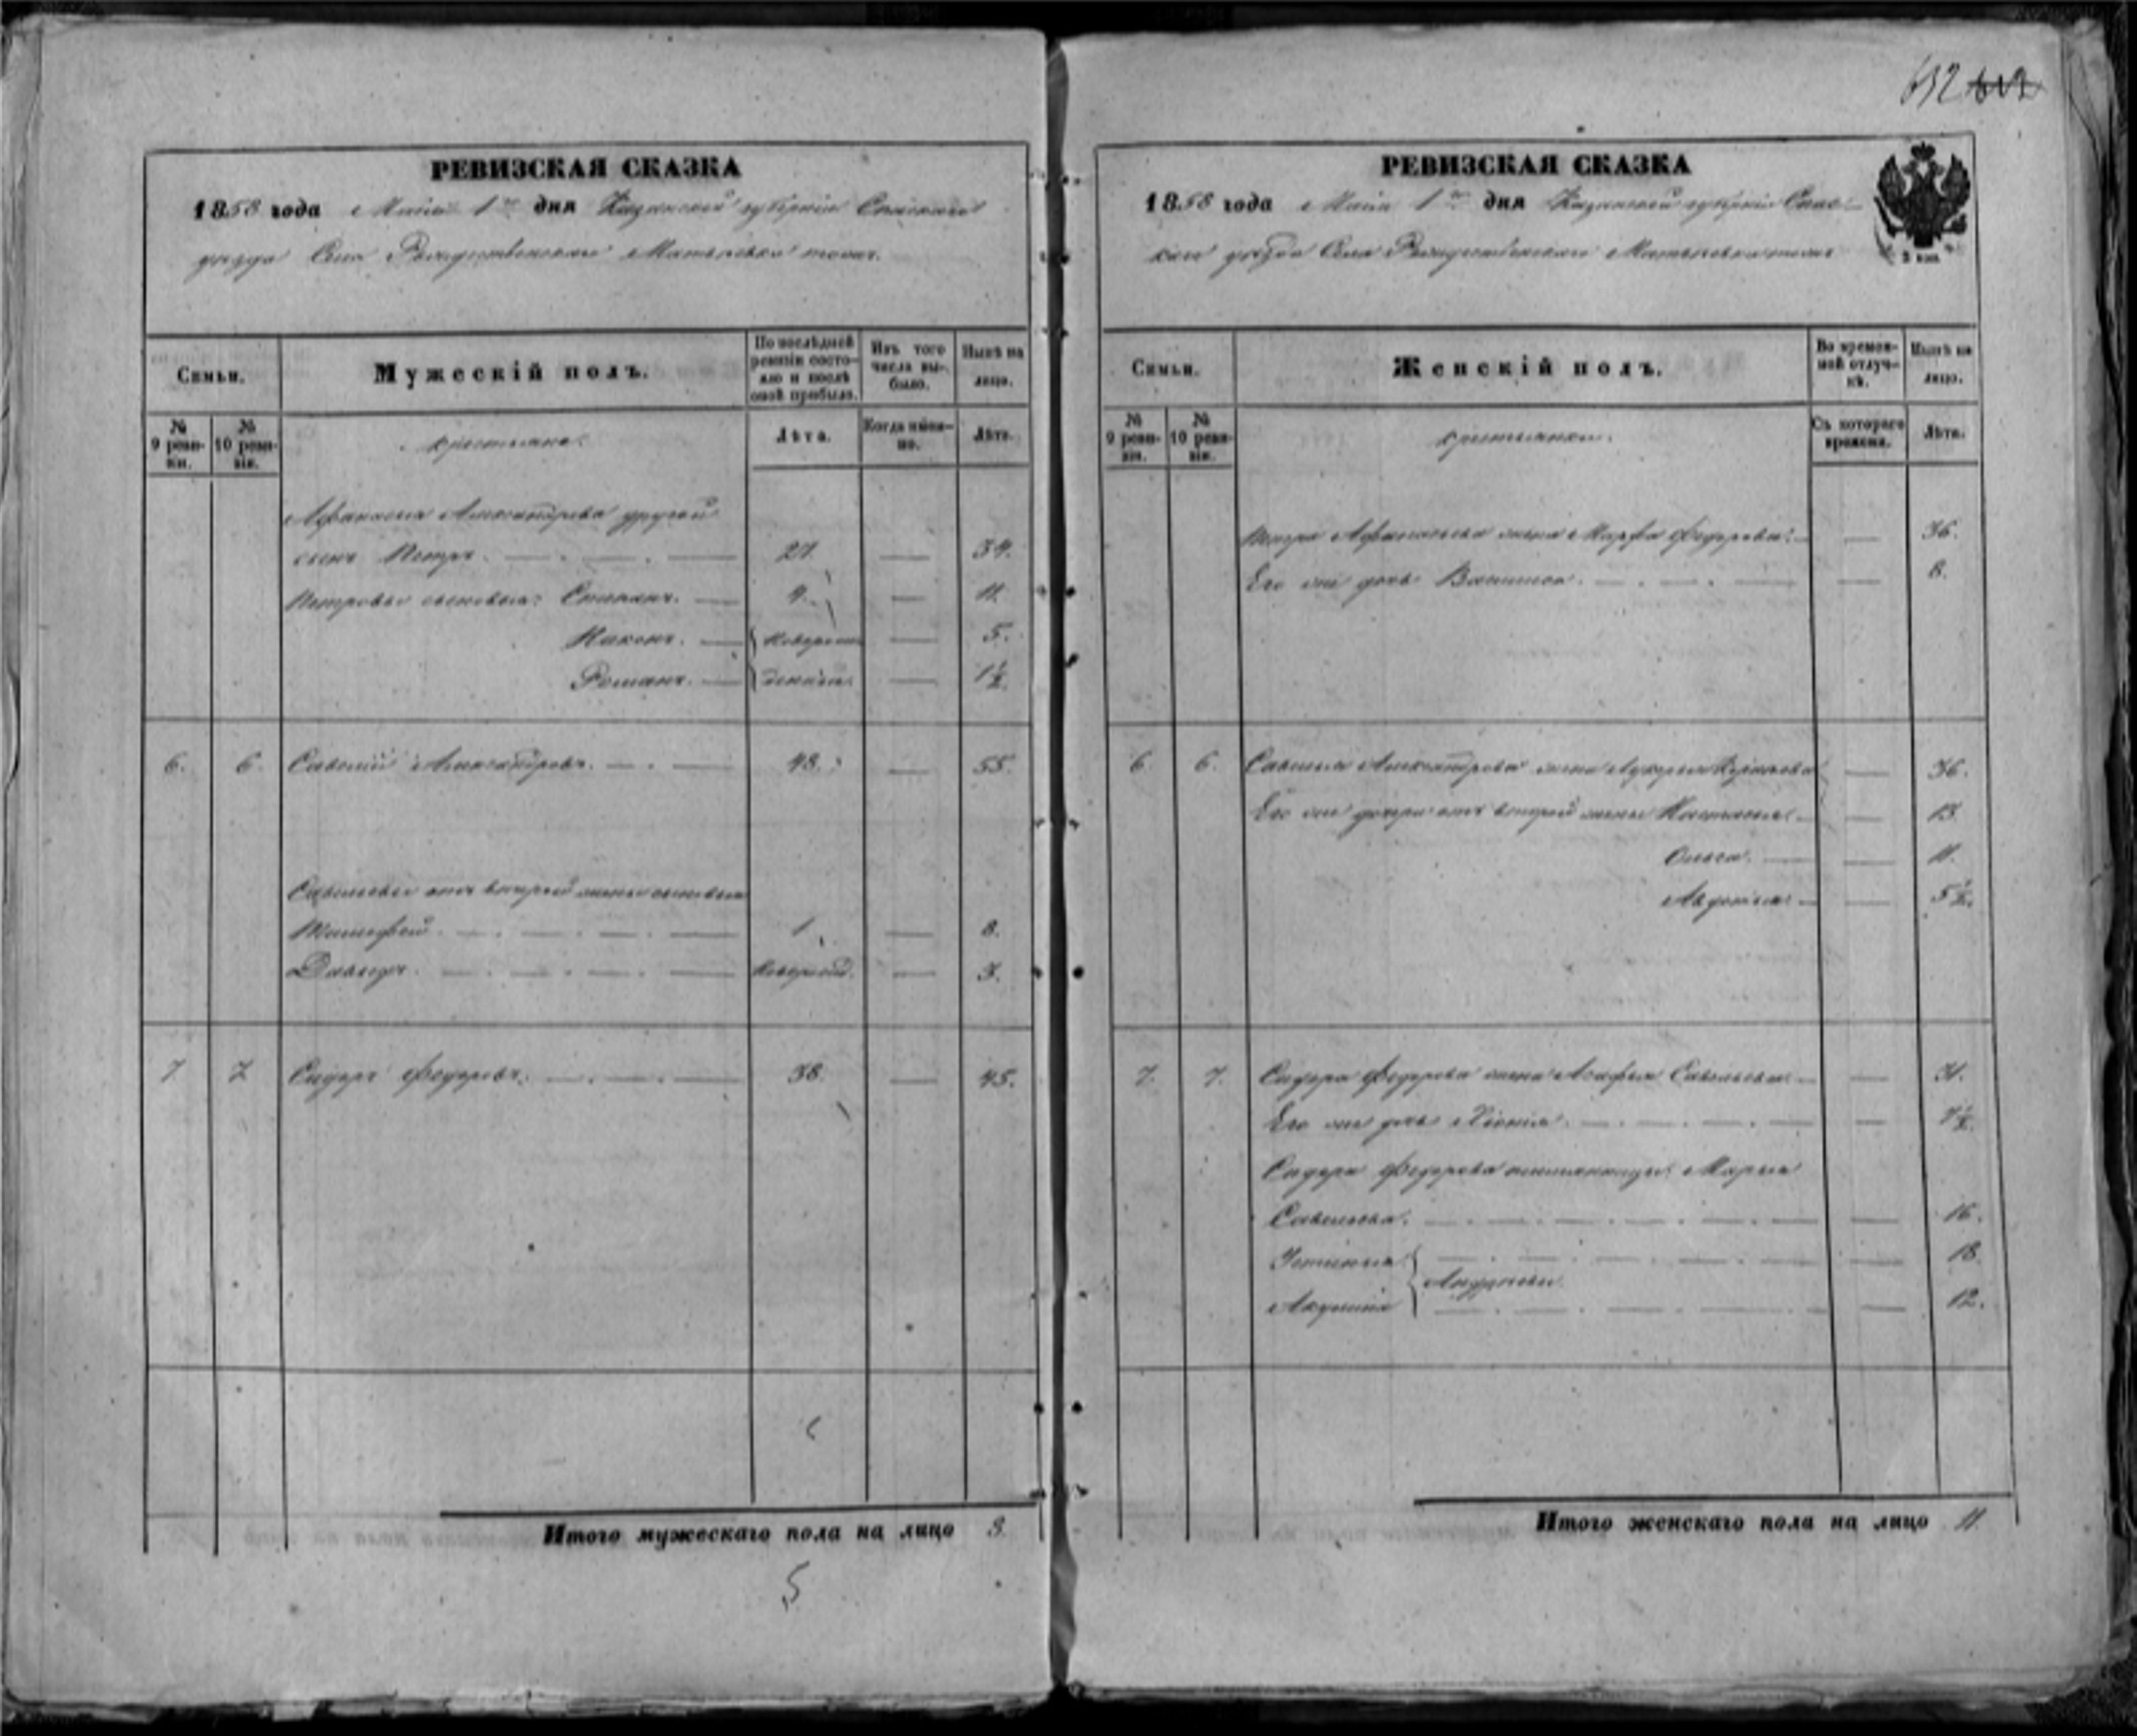 652
РЕВИЗСКАЯ СКАЗКА
1858 года Маія 1го дня Казанской губерніи Спаскаго
уезда Села Рождественскаго Матвѣевка тожъ.
Семьи.
Мужескій полъ.
По послѣдней ревизіи состояло и послѣ оной прибыло.
Изъ того числа выбыло.
Нынѣ на лицо.
№ 9 ревизіи.
№ 10 ревизіи.
крестьяне.
Лѣта.
Когда именно.
Лѣта.
Афанасья Александрова другой
сынъ Петръ. 27. 34.
Петровы сыновья: Степанъ. 4. 11.
Наконъ. новорож 5.
Романъ. денныя. 1½.
6. 6. Савелій Александровъ. 48. 55.
Савельевы отъ второй жены сыновья
Тимофей. 1. 8.
Давыдъ. новорожд. 3.
7. 7. Сидоръ Федоровъ. 38. 45.
Итого мужескаго пола на лицо 8.
5
РЕВИЗСКАЯ СКАЗКА
1858 года Маія 1го дня Казанской губерніи Спас-
каго уезда Села Рождественскаго Матвѣевка тожъ
Семьи.
Женскій полъ.
Во временной отлучкѣ.
Нынѣ на лицо.
№ 9 ревизіи.
№ 10 ревизіи.
крестьянки.
Съ котораго времени.
Лѣта.
Петра Афанасьева жена Марфа Федорова. 36.
Его же дочь 8.
6. 6. Савелья Александрова жена Лукерья 36.
Его же дочери отъ второй жены Настасья. 13.
Ольга. 11.
Авдотья. 5½.
7. 7. Сидора Федорова жена Агафья Савельева. 31.
Его же дочь Хіонія.
Сидора Федорова Марья
Савельева. 16.
Устинья 18.
Акулина 12.
Итого женскаго пола на лицо 11.